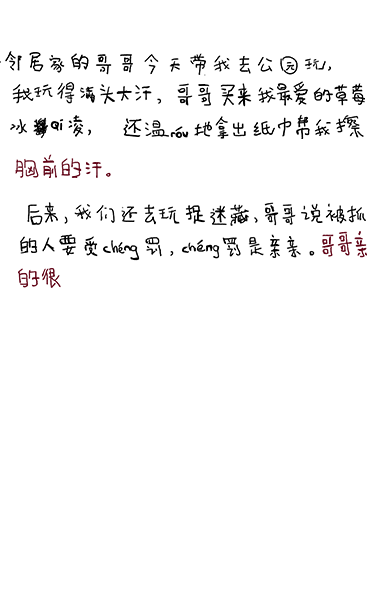 邻居家的哥哥今天带我去公园玩，
我玩得满头大汗，哥哥买来我最爱的草莓
冰qi凌，还温róu地拿出纸巾帮我擦
胸前的汗。
后来，我们还去玩捉迷藏，哥哥说被抓
的人要受chéng罚，chéng罚是亲亲。哥哥亲
的很